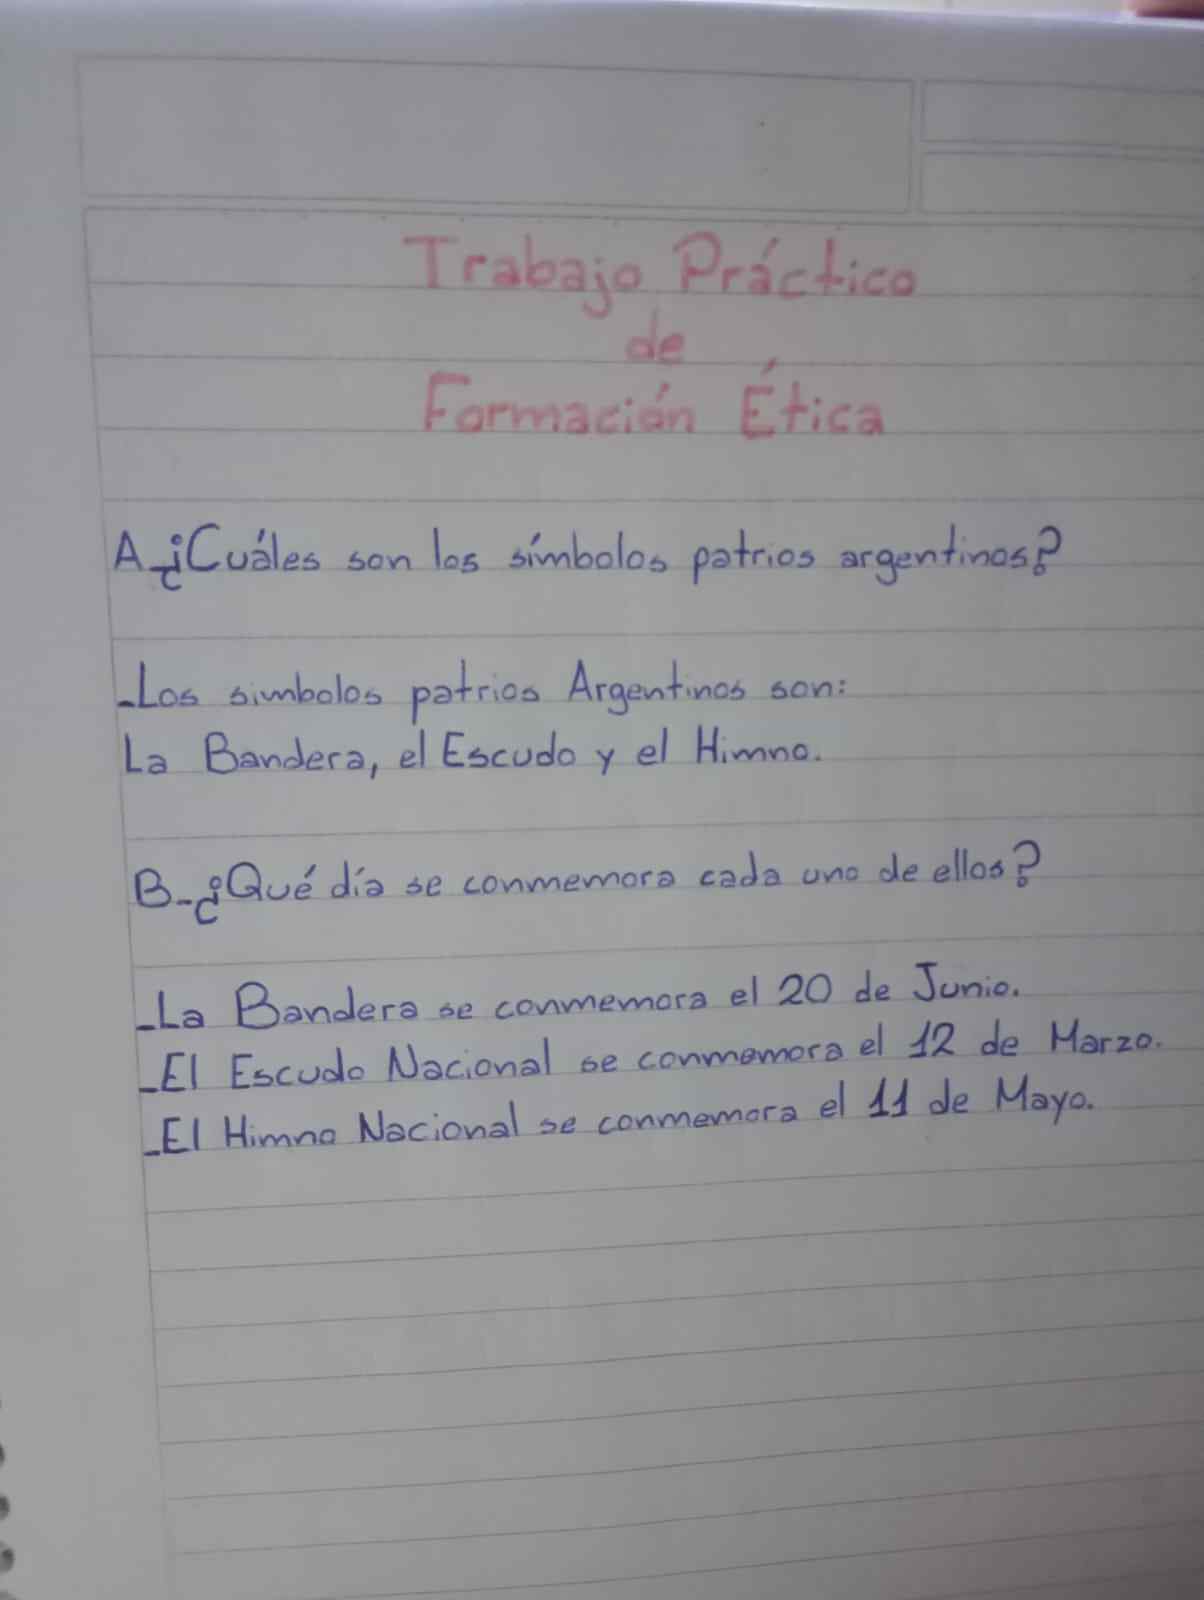 Trabajo Práctico
de
Formación Ética
A-¿Cuáles son los símbolos patrios argentinos?
-Los simbolos patrios Argentinos son:
La Bandera, el Escudo y el Himno.
B-¿Qué día se conmemora cada uno de ellos?
-La Bandera se conmemora el 20 de Junio.
-El Escudo Nacional se conmemora el 12 de Marzo.
-El Himno Nacional se conmemora el 11 de Mayo.